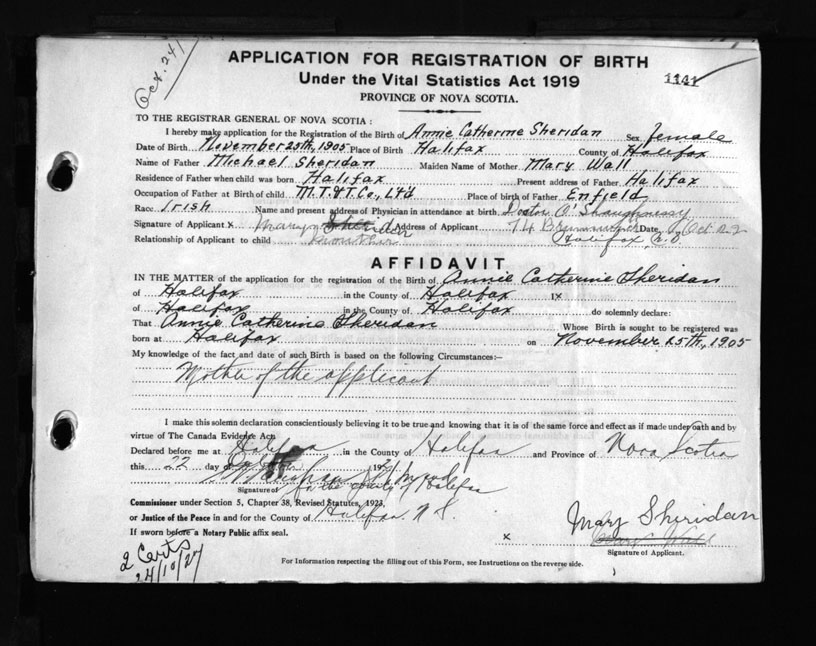 Oct. 24/
APPLICATION FOR REGISTRATION OF BIRTH
1141
Under the Vital Statistics Act 1919
PROVINCE OF NOVA SCOTIA.
TO THE REGISTRAR GENERAL OF NOVA SCOTIA :
I hereby make application for the Registration of the Birth of Annie Catherine Sheridan Sex female
Date of Birth November 25th, 1905 Place of Birth Halifax County of Halifax
Name of Father Michael Sheridan Maiden Name of Mother Mary Wall
Residence of Father when child was born Halifax Present address of Father Halifax
Occupation of Father at Birth of child M.T.&T.Co., Ltd Place of birth of Father Enfield
Race Irish Name and present address of Physician in attendance at birth Doctor O'Shaughnessy
Signature of Applicant x Mary Sheridan Address of Applicant 74 Date Oct
Relationship of Applicant to child Mother Halifax, N.S.
AFFIDAVIT
IN THE MATTER of the application for the registration of the Birth of Annie Catherine Sheridan
of Halifax in the County of Halifax I x
of Halifax in the County of Halifax do solemnly declare:
That Annie Catherine Sheridan Whose Birth is sought to be registered was
born at Halifax on November 25th, 1905
My knowledge of the fact and date of such Birth is based on the following Circumstances:—
Mother of the applicant
I make this solemn declaration conscientiously believing it to be true and knowing that it is of the same force and effect as if made under oath and by
virtue of The Canada Evidence Act.
Declared before me at Halifax in the County of Halifax and Province of Nova Scotia
this 22 day of 19
Signature of for the County of Halifax
Commissioner under Section 5, Chapter 38, Revised Statutes, 1923,
or Justice of the Peace in and for the County of Halifax. N S.
If sworn before a Notary Public affix seal.
x Mary Sheridan
Mary Wall
Signature of Applicant.
2 Certs
24/10/27
For Information respecting the filling out of this Form, see Instructions on the reverse side.